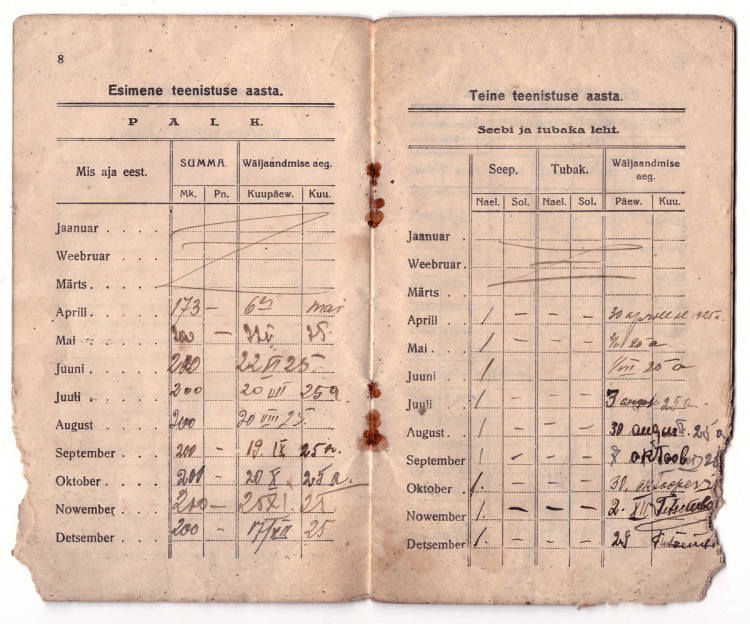 8
Esimene teenistuse aasta.
PALK.
Mis aja eest. SUMMA. Wäljaandmise aeg.
Mk. Pn. Kuupäew. Kuu.
Jaanuar
Weebruar
Märts
Aprill 173 — 6 mai
Mai 200 — 25
Juuni 200 22 VI 25
Juuli 200 20 VII 25 a.
August 200 20 VIII 25.
September 200 - 19. IX 25 a.
Oktober 200 - 20 X 25 a.
Nowember 200 — 25 XI 25
Detsember 200 - 17/XII 25
Teine teenistuse aasta.
Seebi ja tubaka leht.
Seep. Tubak. Wäljaandmise aeg.
Nael. Sol. Nael. Sol. Päew. Kuu.
Jaanuar
Weebruar
Märts
Aprill 1 - - - 30 1925 a.
Mai 1 - - - 25 a
Juuni 1 25 a
Juuli 1 - - - 3 august 25 a.
August 1 - - - 30 august. 25 a
September 1 - - - 8 oktoober 25
Oktober 1. - - - 30. oktoober
Nowember 1. - - - 2. XII
Detsember 1. - - -